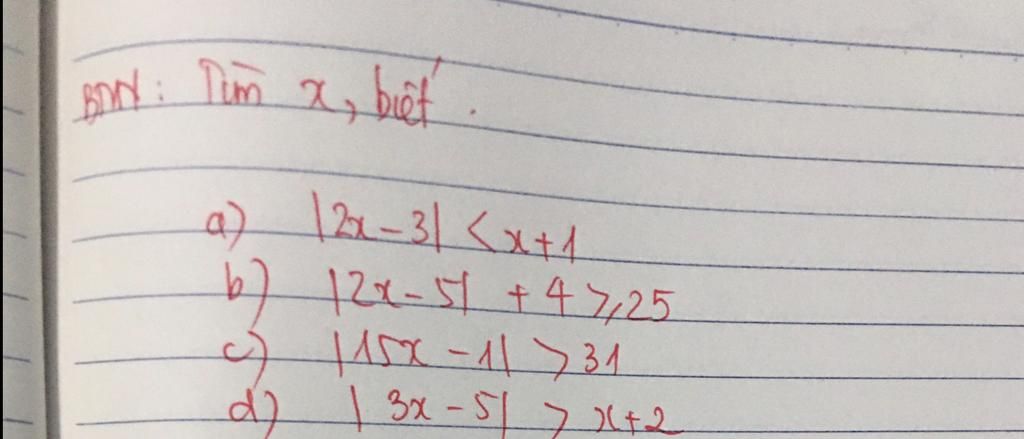 BTVN: Tìm x, biết.
a) |2x-3| < x+1
b) |2x-5| + 4 ≥ 25
c) |15x-1| > 31
d) |3x-5| > x+2